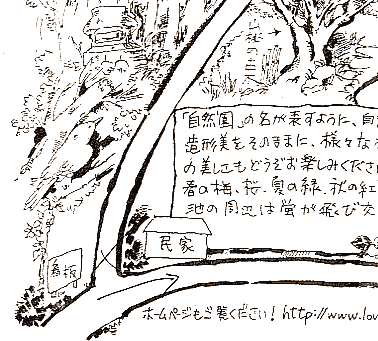 「自然園」の名が表すように、自
造形美をそのままに、様々な
の美しさもどうぞお楽しみくださ
春の梅、桜、夏の緑、秋の紅
池の周辺は蛍が飛び交
民家
看板
ホームページもご覧ください! http://www.lov